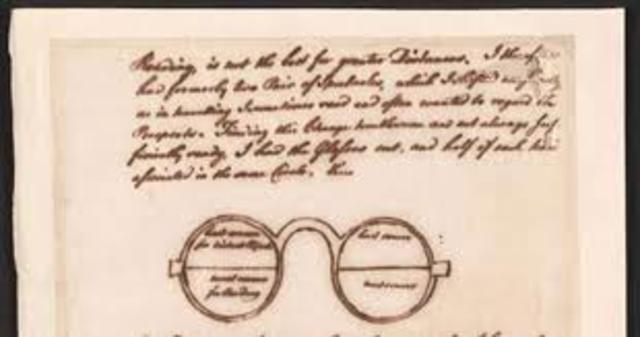 Reading, is not the best for greater Distances. I theref
had formerly two Pair of Spectacles, which I shifted occasionally
as in travelling I sometimes read and often wanted to regard the
Prospects. Finding this Change troublesome and not always suf
ficiently ready, I had the Glasses cut, and half of each kind
associated in the same Circle. thus
least convex
for distant Objects
most convex
for Reading
least convex
most convex